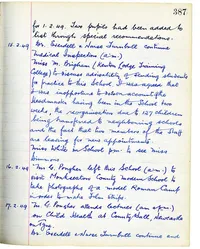 387
for 1.2.49. Two pupils had been added to
list through special recommendations.
15.2.49 Dr. Liddell & Nurse Turnbull continue
medical Inspection (a.m.)
Miss M. Brigham (Kenton Lodge Training
College) to discuss advisability of sending students
for practice to this School. It was agreed that
it was inopportune to return among the
Headmaster having been in the School two
weeks, the reorganisation due to 127 children
being transferred to neighbouring schools
and the fact that two members of the Staff
are leaving for new appointments.
Miss White in School p.m. to see Miss
Simmons
16.2.49 Mr G. Pougher left this School (a.m.) to
visit Monkseaton County Modern School to
take photographs of a model Roman Camp
in order to make film strips.
17.2.49 Mr G. Pougher attends lecture (am & pm)
on Child Health at County Hall, Newcastle
on Tyne.
Dr. Liddell & Nurse Turnbull continue and